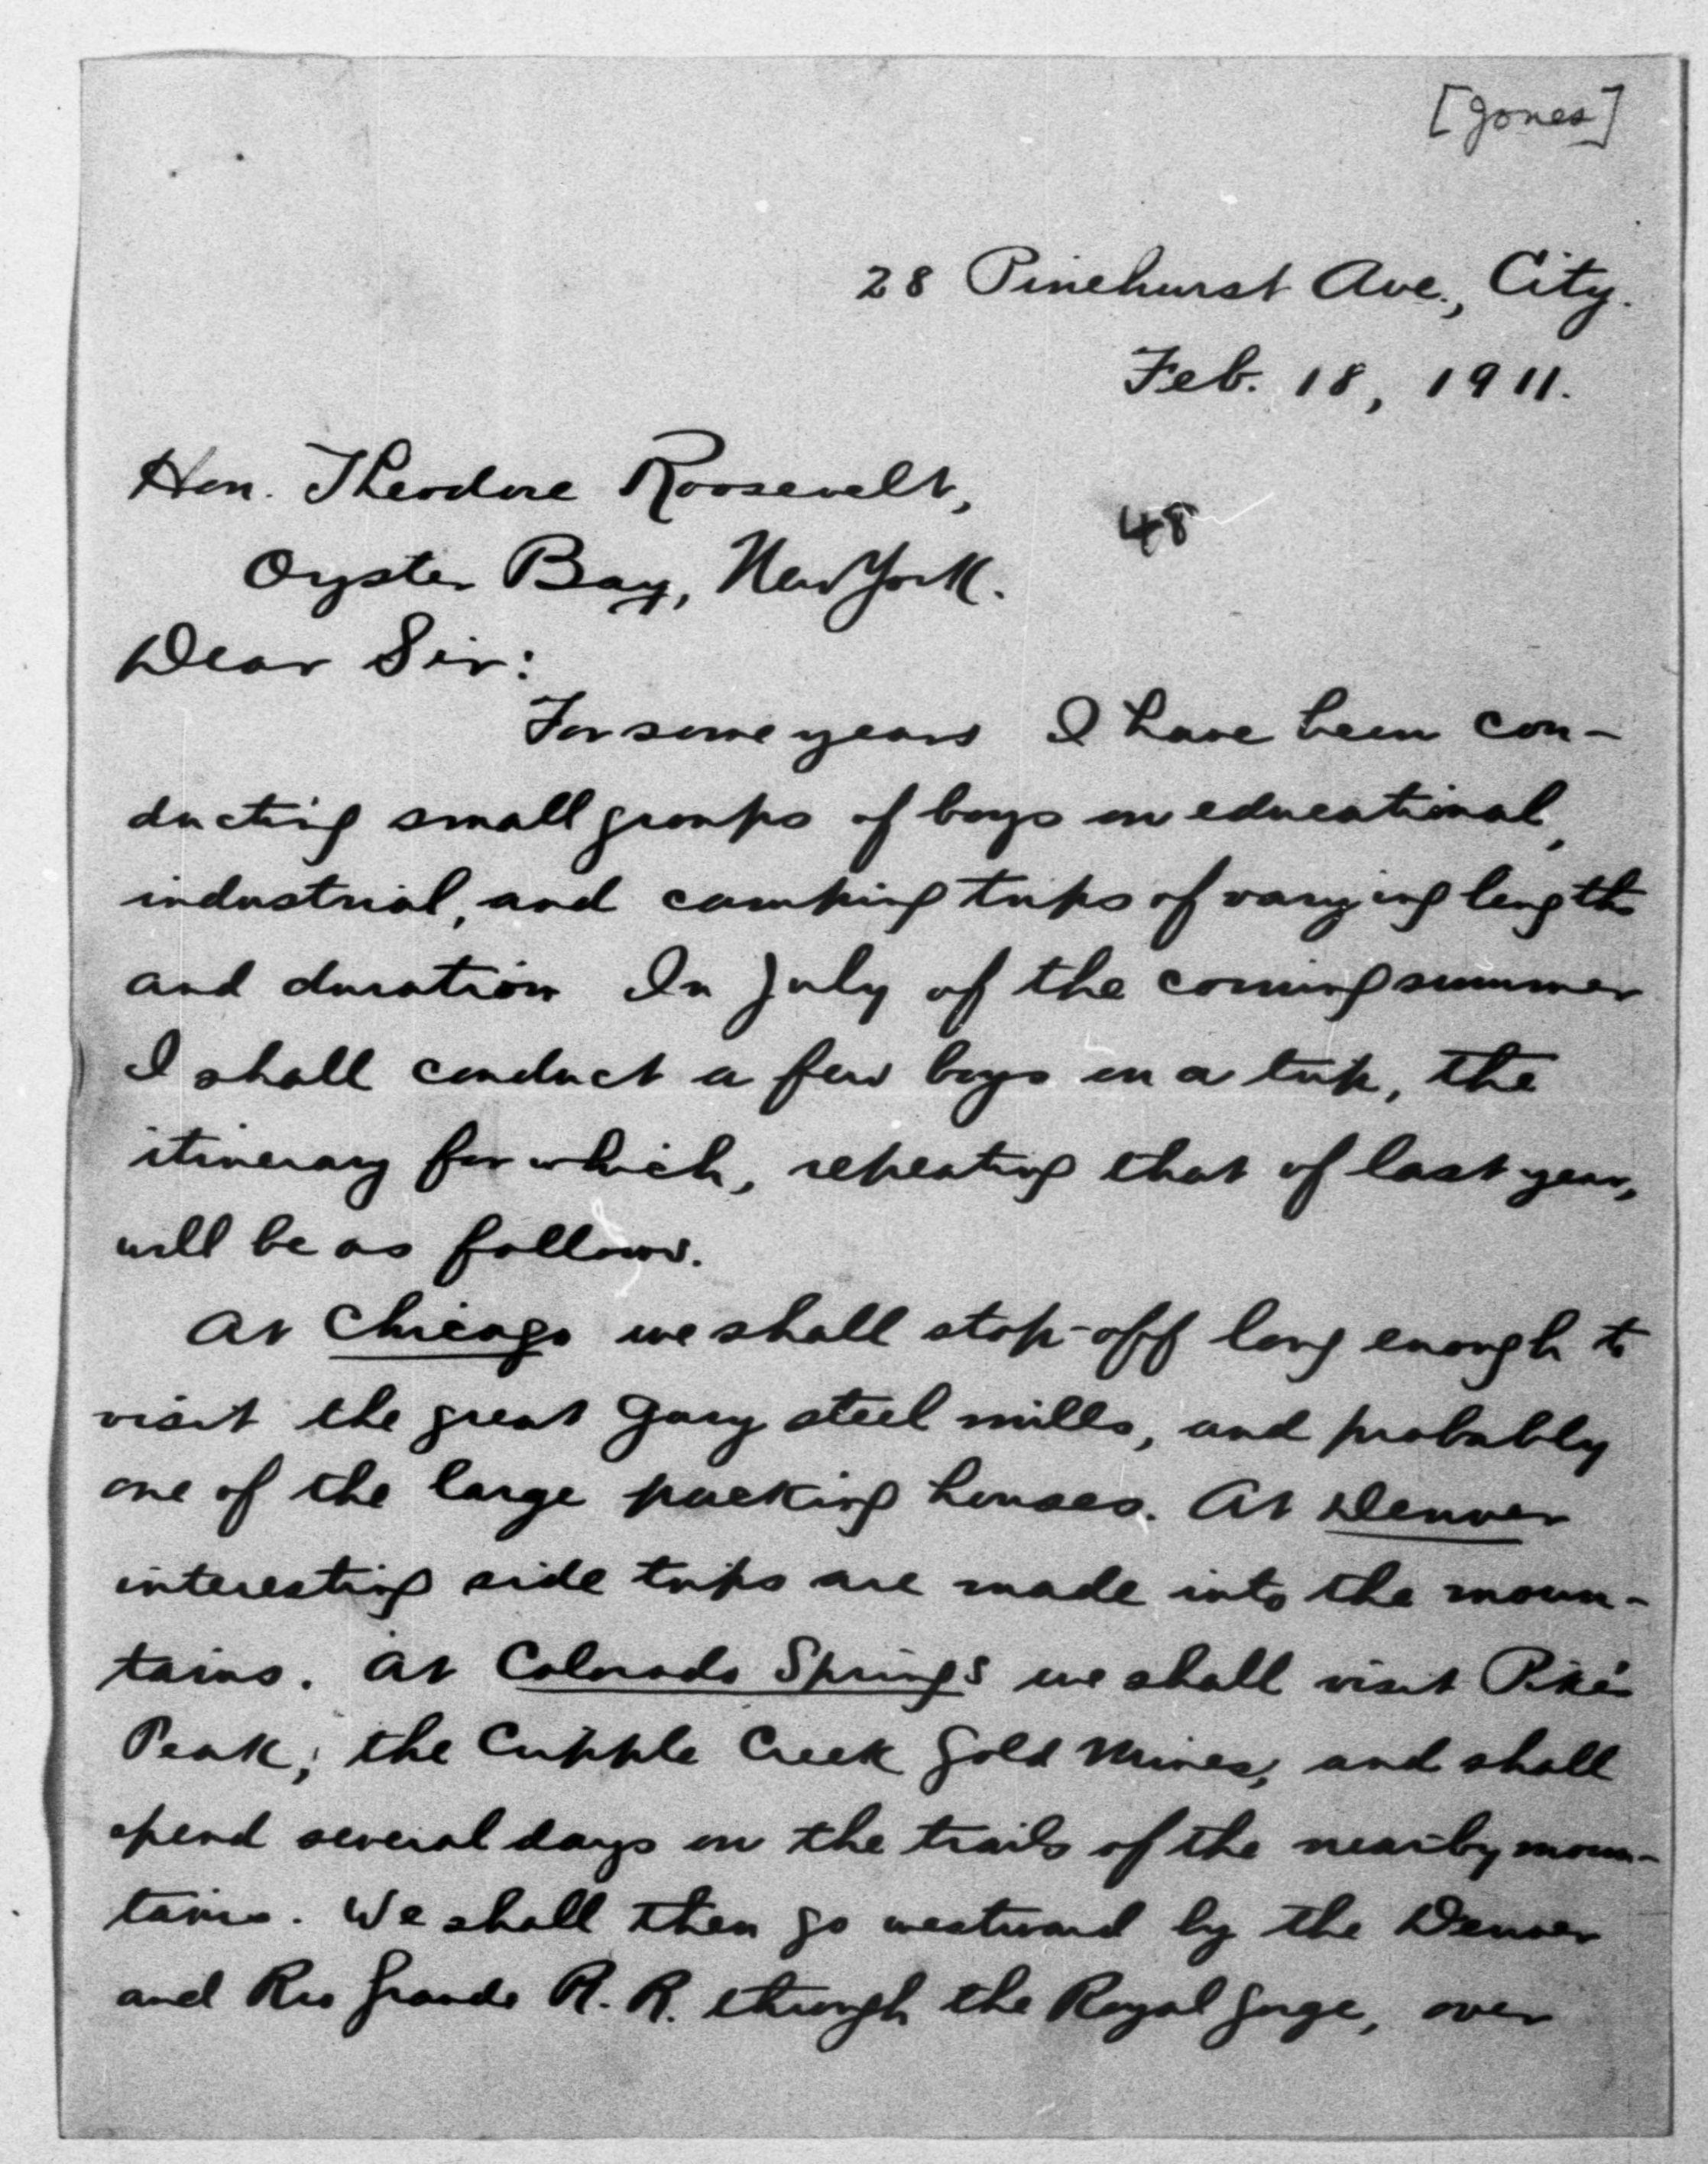 [Jones]
28 Pinehurst Ave., City.
Feb. 18, 1911.
Hon. Theodore Roosevelt,
48
Oyster Bay, New York.
Dear Sir:
For some years I have been con-
ducting small groups of boys on educational,
industrial, and camping trips of varying length
and duration In July of the coming summer
I shall conduct a few boys on a trip, the
itinerary for which, repeating that of last year,
will be as follows.
At Chicago we shall stop-off long enough to
visit the great Gary steel mills, and probably
one of the large packing houses. At Denver
interesting side trips are made into the moun-
tains. At Colorado Springs we shall visit Pike's
Peak, the Cripple Creek Gold Mines, and shall
spend several days on the trails of the nearby moun-
tains. We shall then go westward by the Denver
and Rio Grande R. R. through the Royal Gorge, over